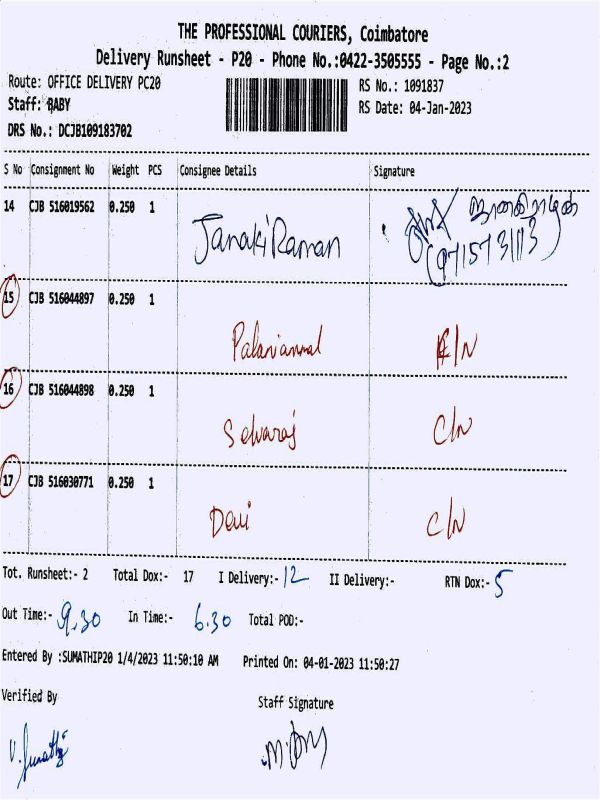 THE PROFESSIONAL COURIERS, Coimbatore
Delivery Runsheet - P20 - Phone No.:0422-3505555 - Page No.:2
Route: OFFICE DELIVERY PC20
RS No.: 1091837
Staff: BABY
RS Date: 04-Jan-2023
DRS No.: DCJB109183702
S No Consignment No Weight PCS Consignee Details Signature
14 CJB 516019562 0.250 1 JanakiRaman
15 CJB 516044897 0.250 1
Palaniammal C/N
16 CJB 516044898 0.250 1
Selvaraj C/N
17 CJB 516030771 0.250 1
Devi C/N
Tot. Runsheet:- 2 Total Dox:- 17 I Delivery:- 12 II Delivery:- RTN Dox:- 5
Out Time:- 9.30 In Time:- 6.30 Total POD:-
Entered By :SUMATHIP20 1/4/2023 11:50:10 AM Printed On: 04-01-2023 11:50:27
Verified By Staff Signature
V. Sumathi